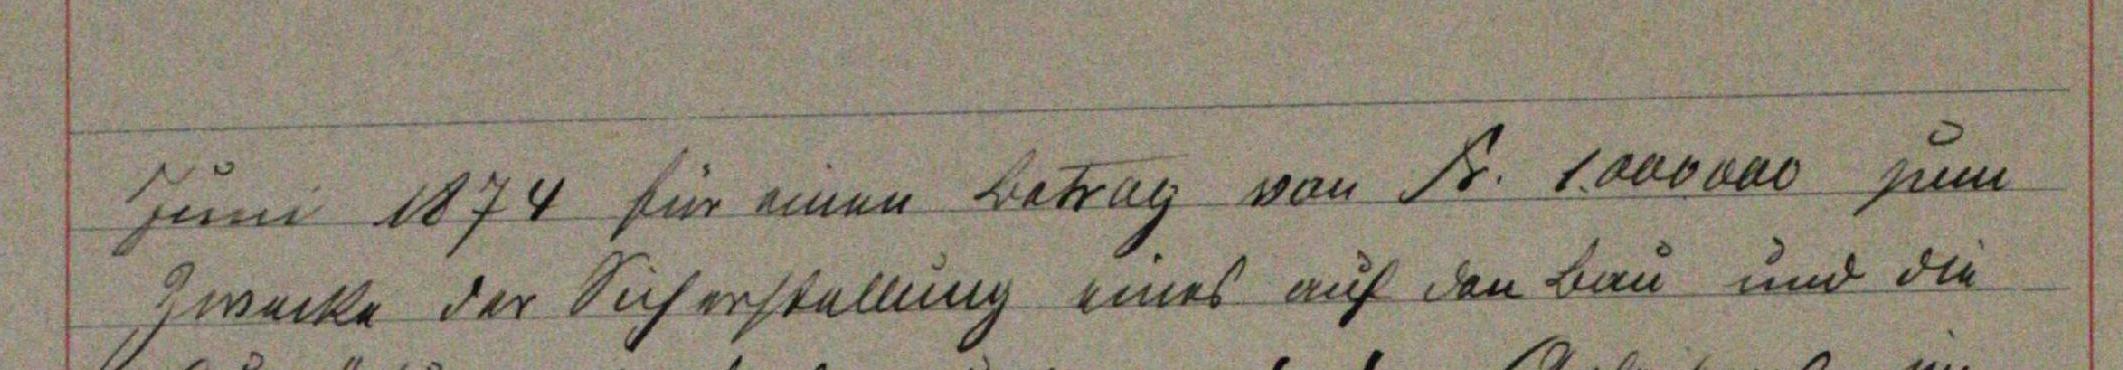 Juni 1874 für einen Betrag von Fr. 1.000000 zum
Zwecke der Sicherstellung eines auf den Bau und die